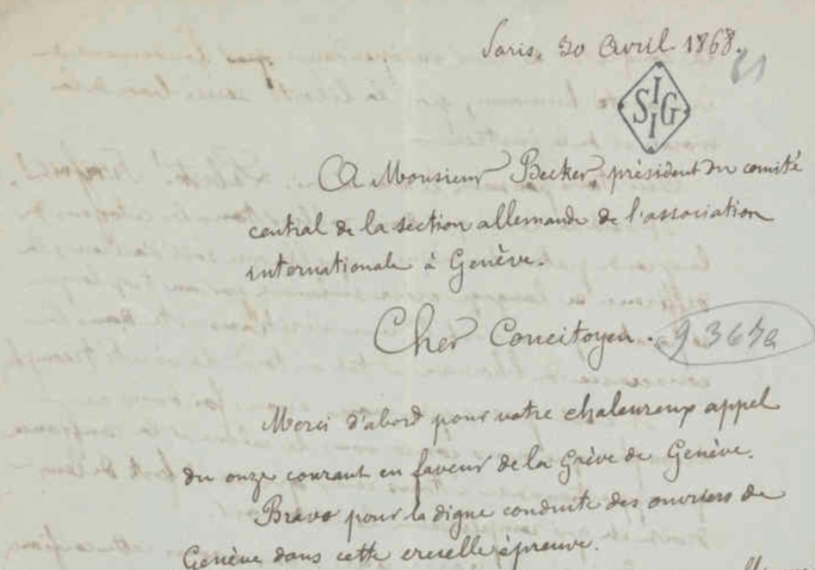 Paris, 20 Avril 1868.
IISG
A Monsieur Becker, président du comité
central de la section allemande de l'association
internationale à Genève.
Cher Concitoyen.
Merci d'abord pour votre chaleureux appel
du onze courant en faveur de la Grève de Genève.
Bravo pour la digne conduite des ouvriers de
Genève dans cette cruelle épreuve.